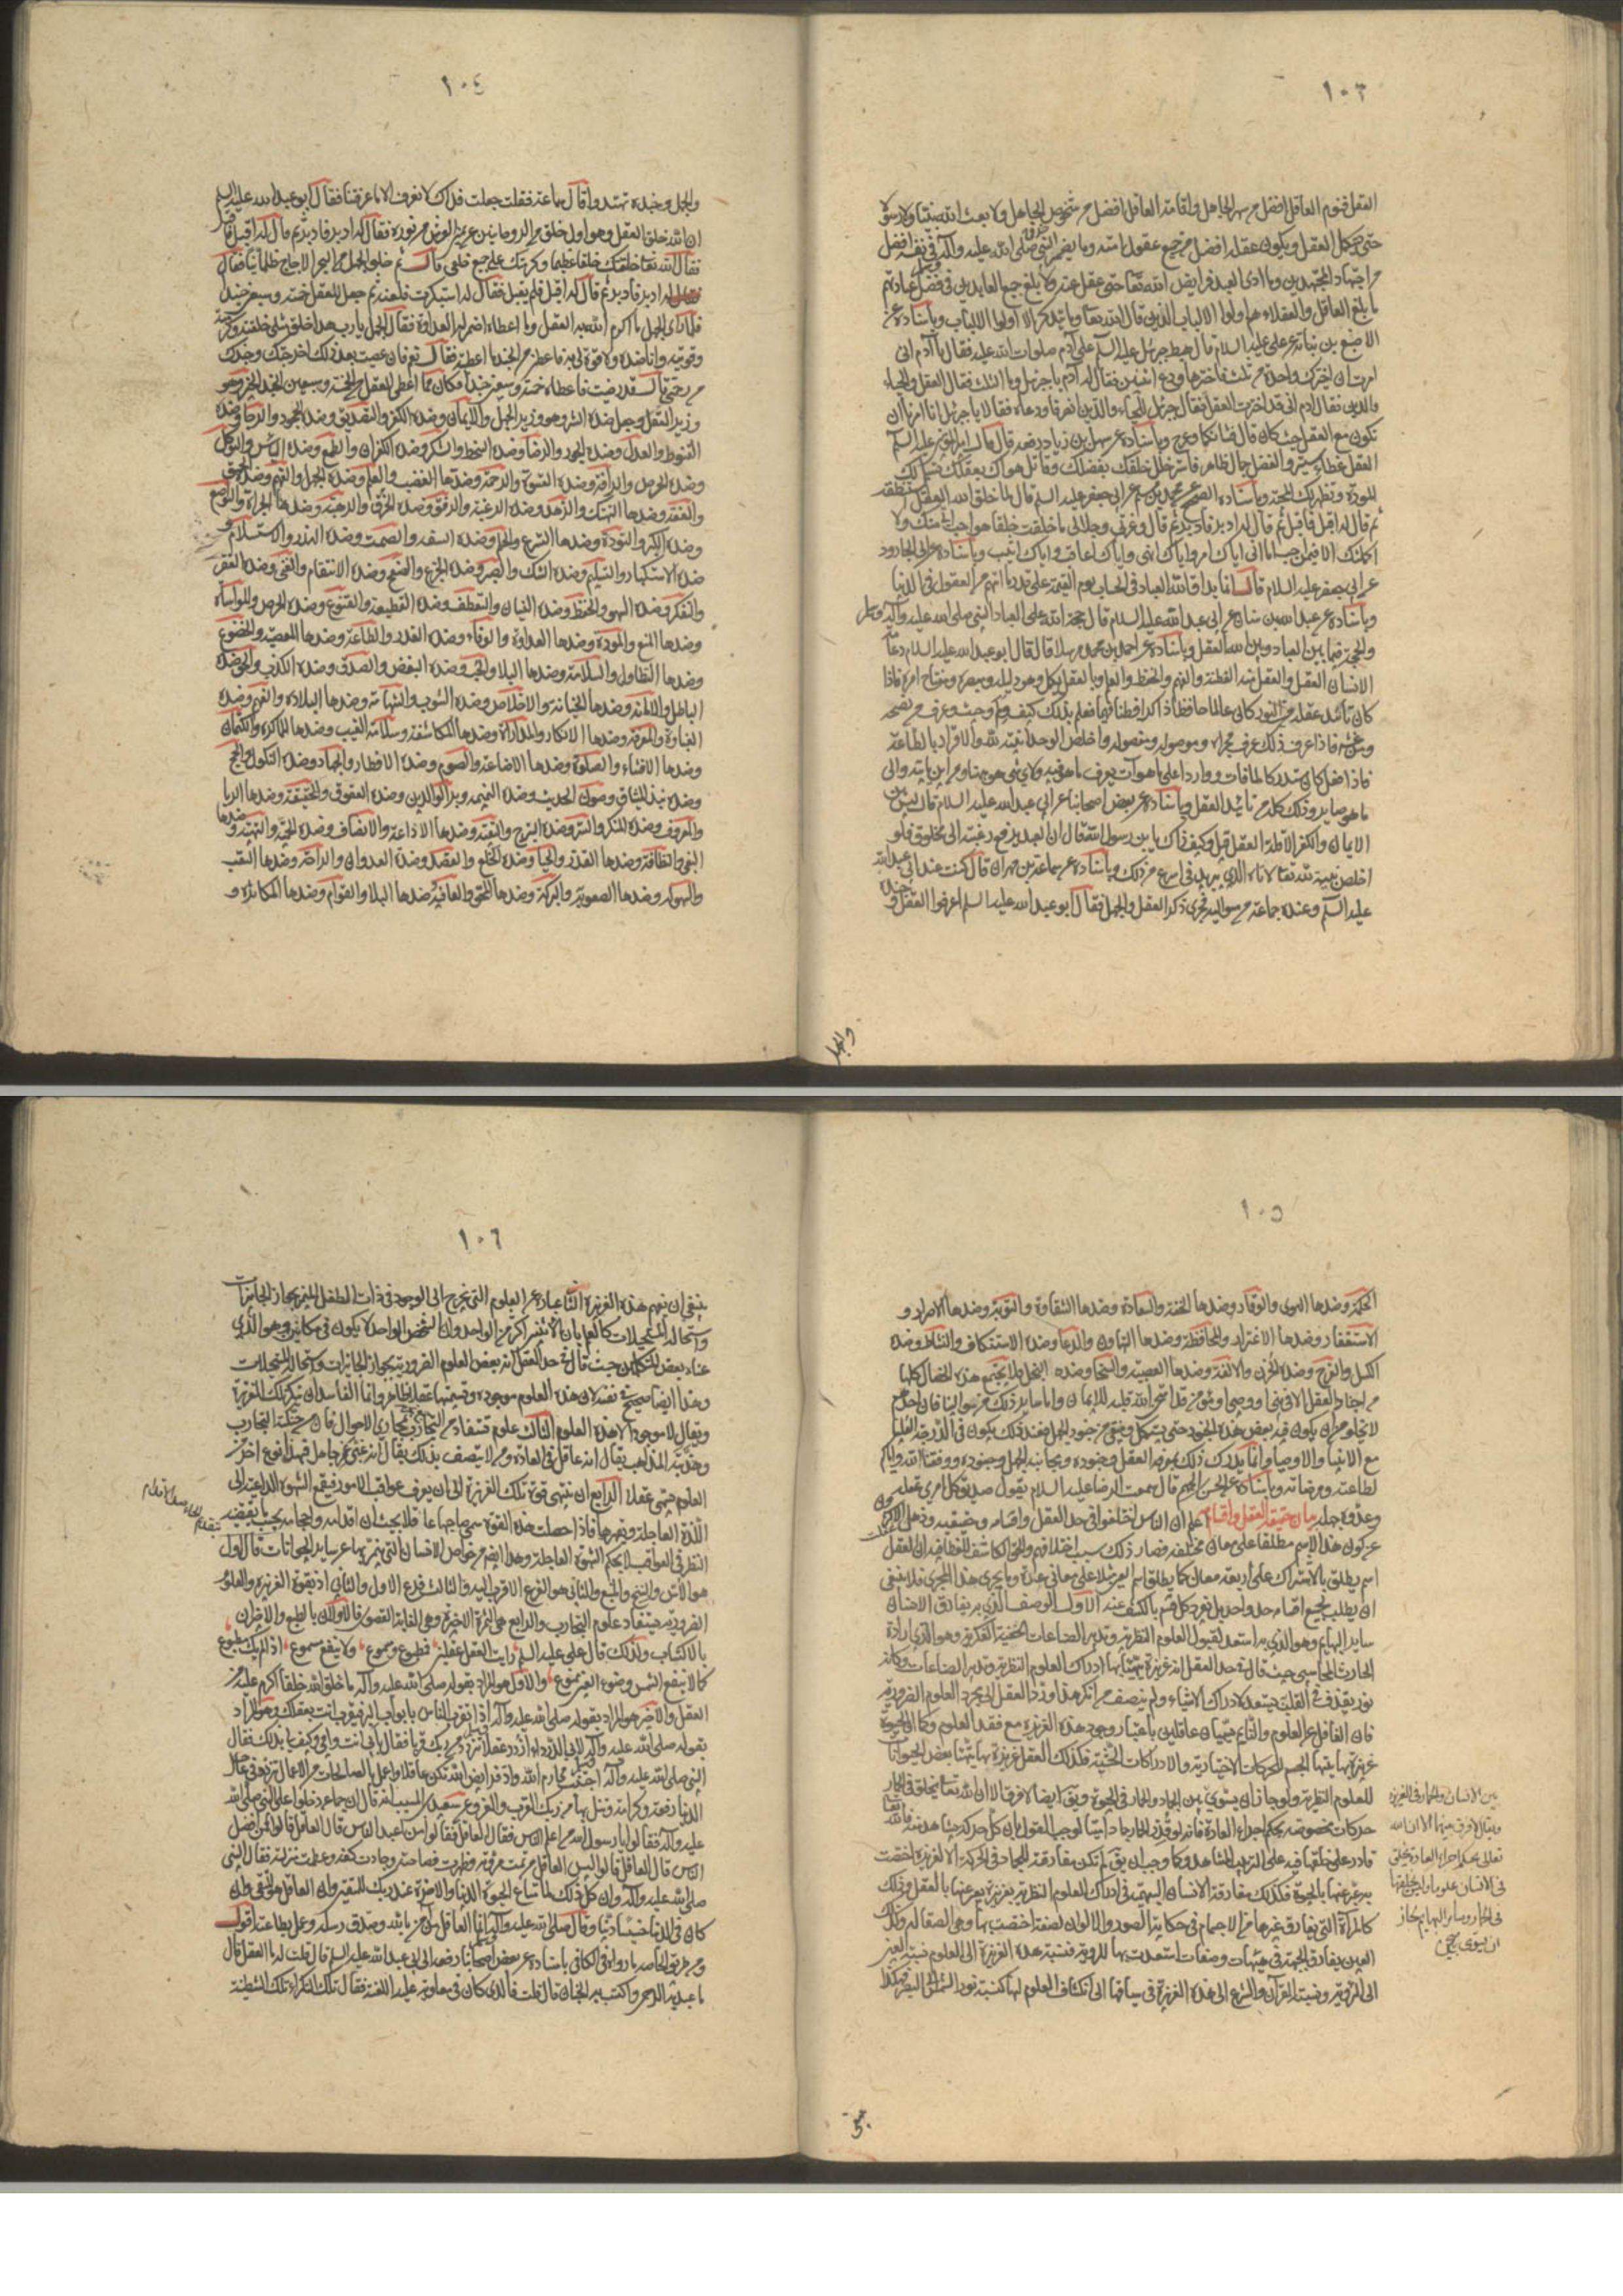 ١٠٣
العقل فنوم العاقل افضل من سهر الجاهل واقامة العاقل افضل من شخوص الجاهل ولا بعث الله نبيا ولا رسولا
حتى يستكمل العقل ويكون عقله افضل من جميع عقول امته وما يضمر النبي صلى الله عليه وآله في نفسه افضل
من اجتهاد المجتهدين وما ادى العبد فرايض الله تعالى حتى عقل عنه ولا بلغ جميع العابدين في فضل عبادتهم
ما بلغ العاقل والعقلاء هم اولوا الالباب الذين قال الله تعالى وما يتذكر الا اولوا الالباب وباسناده عن
الاصبغ بن نباتة عن علي عليه السلام قال هبط جبرئيل عليه السلم على آدم صلوات الله عليه فقال يا آدم اني
امرت ان اخيرك واحدة من ثلث فاخترها ودع اثنتين فقال له آدم يا جبرئيل وما الثلث فقال العقل والحياء
والدين فقال آدم اني قد اخترت العقل فقال جبرئيل للحياء والدين انصرفا ودعاه فقالا يا جبرئيل انا امرنا ان
نكون مع العقل حيث كان قال فشانكما وعرج وباسناده عن سهل بن زياد رفعه قال قال امير المؤمنين عليه السلم
العقل غطاء ستير والفضل جمال ظاهر فاستر خلل خلقك بفضلك وقاتل هواك بعقلك تسلم لك
المودة وتظهر لك المحبة وباسناده الصحيح عن محمد بن مسلم عن ابي جعفر عليه السلم قال لما خلق الله العقل استنطقه
ثم قال له اقبل فاقبل ثم قال له ادبر فادبر ثم قال وعزتي وجلالي ما خلقت خلقا هو احب الي منك ولا
اكملتك الا فيمن احب اما اني اياك امر واياك انهى واياك اعاقب واياك اثيب وباسناده عن ابي الجارود
عن ابي جعفر عليه السلام قال انما يداق الله العباد في الحساب يوم القيمة على قدر ما اتهم من العقول في الدنيا
وباسناده عن عبد الله بن سنان عن ابي عبد الله عليه السلام قال حجة الله على العباد النبي صلى الله عليه وآله وسلم
والحجة فيما بين العباد وبين الله العقل وباسناده عن احمد بن محمد مرسلا قال قال ابو عبد الله عليه السلام دعامة
الانسان العقل والعقل منه الفطنة والفهم والحفظ والعلم وبالعقل يكمل وهو دليله ومبصره ومفتاح امره فاذا
كان تأييد عقله من النور كان عالما حافظا ذاكرا فطنا فهما فعلم بذلك كيف ولم وحيث وعرف من نصحه
ومن غشه فاذا عرف ذلك عرف مجراه وموصوله ومفصوله واخلص الوحدانية لله والاقرار بالطاعة
فاذا فعل ذلك كان مستدركا لما فات وواردا على ما هو آت يعرف ما هو فيه ولاي شيء هو هيهنا ومن اين يأتيه والى
ما هو صاير وذلك كله من تأييد العقل وباسناده عن بعض اصحابنا عن ابي عبد الله عليه السلام قال ليس بين
الايمان والكفر الا قلة العقل قيل وكيف ذاك يا بن رسول الله قال ان العبد يرفع رغبته الى مخلوق فلو
اخلص نيته لله تعالى لاتاه الذي يريد في اسرع من ذلك وباسناده عن سماعة بن مهران قال كنت عند ابي عبد الله
عليه السلم وعنده جماعة من مواليه فجرى ذكر العقل والجهل فقال ابو عبد الله عليه السلم اعرفوا العقل وجنده
والجهل
١٠٤
والجهل وجنده تهتدوا قال سماعة فقلت جعلت فداك لا نعرف الا ما عرفتنا فقال ابو عبد الله عليه السلم
ان الله خلق العقل وهو اول خلق من الروحانيين عن يمين العرش من نوره فقال له ادبر فادبر ثم قال له اقبل فاقبل
فقال الله تعالى خلقتك خلقا عظيما وكرمتك على جميع خلقي قال ثم خلق الجهل من البحر الاجاج ظلمانيا فقال
له ادبر فادبر ثم قال له اقبل فلم يقبل فقال له استكبرت فلعنه ثم جعل للعقل خمسة وسبعين جندا
فلما رأى الجهل ما اكرم الله به العقل وما اعطاه اضمر له العداوة فقال الجهل يا رب هذا خلق مثلي خلقته وكرمته
وقويته وانا ضده ولا قوة لي به فاعطني من الجند ما اعطيته فقال نعم فان عصيت بعد ذلك اخرجتك وجندك
من رحمتي قال قد رضيت فاعطاه خمسة وسبعين جندا فكان مما اعطى العقل من الخمسة وسبعين الجند الخير وهو
وزير العقل وجعل ضده الشر وهو وزير الجهل والايمان وضده الكفر والتصديق وضده الجحود والرجاء وضده
القنوط والعدل وضده الجور والرضا وضده السخط والشكر وضده الكفران والطمع وضده اليأس والتوكل
وضده الحرص والرأفة وضدها القسوة والرحمة وضدها الغضب والعلم وضده الجهل والفهم وضده الحمق
والعفة وضدها التهتك والزهد وضده الرغبة والرفق وضده الخرق والرهبة وضدها الجرأة والتواضع
وضده الكبر والتؤدة وضدها التسرع والحلم وضده السفه والصمت وضده الهذر والاستسلام و
ضده الاستكبار والتسليم وضده الشك والصبر وضده الجزع والصفح وضده الانتقام والغنى وضده الفقر
والتفكر وضده السهو والحفظ وضده النسيان والتعطف وضده القطيعة والقنوع وضده الحرص والمواساة
وضدها المنع والمودة وضدها العداوة والوفاء وضده الغدر والطاعة وضدها المعصية والخضوع
وضده التطاول والسلامة وضدها البلاء والحب وضده البغض والصدق وضده الكذب والحق وضده
الباطل والامانة وضدها الخيانة والاخلاص وضده الشوب والشهامة وضدها البلادة والفهم وضده
الغباوة والمعرفة وضدها الانكار والمداراة وضدها المكاشفة وسلامة الغيب وضدها المماكرة والكتمان
وضده الافشاء والصلوة وضدها الاضاعة والصوم وضده الافطار والجهاد وضده النكول والحج
وضده نبذ الميثاق وصون الحديث وضده النميمة وبر الوالدين وضده العقوق والحقيقة وضدها الريا
والمعروف وضده المنكر والستر وضده التبرج والتقية وضدها الاذاعة والانصاف وضده الحمية والتهيئة وضدها
البغي والنظافة وضدها القذر والحياء وضده الخلع والقصد وضده العدوان والراحة وضدها التعب
والسهولة وضدها الصعوبة والبركة وضدها المحق والعافية وضدها البلاء والقوام وضدها المكاثرة و
١٠٥
الحكمة وضدها الهوى والوقار وضده الخفة والسعادة وضدها الشقاوة والتوبة وضدها الاصرار و
الاستغفار وضده الاغترار والمحافظة وضدها التهاون والدعاء وضده الاستنكاف والنشاط وضده
الكسل والفرح وضده الحزن والالفة وضدها العصبية والسخاء وضده البخل فلا يجتمع هذه الخصال كلها
من اجناد العقل الا في نبي او وصي او مؤمن قد امتحن الله قلبه للايمان واما ساير ذلك من موالينا فان احدهم
لا يخلو من ان يكون فيه بعض هذه الجنود حتى يستكمل وينقى من جنود الجهل فعند ذلك يكون في الدرجة العليا
مع الانبياء والاوصياء وانما يدرك ذلك بمعرفة العقل وجنوده وبمجانبة الجهل وجنوده ووفقنا الله واياكم
لطاعته ومرضاته وباسناده عن الحسن بن الجهم قال سمعت الرضا عليه السلام يقول صديق كل امرئ عقله
وعدوه جهله بيان حقيقة العقل واقسامه اعلم ان الناس اختلفوا في حد العقل واقسامه وحقيقته وذهل الاكثرون
عن كون هذا الاسم مطلقا على معان مختلفة فصار ذلك سبب اختلافهم والحق الكاشف للغطاء فيه ان العقل
اسم يطلق بالاشتراك على اربعة معان كما يطلق اسم العين مثلا على معاني عدة وما يجري هذا المجرى فلا ينبغي
ان يطلب لجميع اقسامه حد واحد بل يفرد كل قسم بالكشف عنه الاول الوصف الذي به يفارق الانسان
ساير البهايم وهو الذي به استعد لقبول العلوم النظرية وتدبير الصناعات الخفية الفكرية وهو الذي اراده
الحارث المحاسبي حيث قال في حد العقل انه غريزة يتهيأ بها ادراك العلوم النظرية وتدبير الصناعات وكانه
نور يقذف في القلب به يستعد لادراك الاشياء ولم ينصف من انكر هذا ورد العقل الى مجرد العلوم الضرورية
فان الغافل عن العلوم والنايم يسميان عاقلين باعتبار وجود هذه الغريزة مع فقد العلوم وكما ان الحيوة
غريزة بها يتهيأ الجسم للحركات الاختيارية والادراكات الحسية فكذلك العقل غريزة بها يتهيأ بعض الحيوانات
للعلوم النظرية ولو جاز ان يسوي بين الجماد والحمار في الحيوة ويق ايضا لا فرق الا ان الله تعالى يخلق في الحمار
حركات مخصوصة بحكم اجراء العادة فانه لو قدر الحمار جمادا ميتا لوجب القول بان كل حركة تشاهد منه فالله تعالى
قادر على خلقها فيه على الترتيب المشاهد وكما وجب ان يق لم تكن مفارقته للجماد في الحركة الا لغريزة اختصت
به عبر عنها بالحيوة فكذلك مفارقة الانسان البهيمة في ادراك العلوم النظرية بغريزة يعبر عنها بالعقل وذلك
كالمرآة التي تفارق غيرها من الاجسام في حكاية الصور والالوان لصفة اختصت بها وهي الصقالة وكذلك
العين يفارق الجبهة في هيئات وصفات استعدت بها للرؤية فنسبة هذه الغريزة الى العلوم نسبة العين
الى الرؤية ونسبة القرآن والشرع الى هذه الغريزة في سياقها الى انكشاف العلوم لها كنسبة نور الشمس الى البصر فهكذا
بين الانسان والحمار في الغريزة
ويقال لا فرق بينهما الا ان الله
تعالى بحكم اجراء العادة يخلق
في الانسان علوما وليس يخلقها
في الحمار وساير البهايم لجاز
ان يسوى صح
ينبغي
١٠٦
ينبغي ان يفهم هذه الغريزة الثاني عبارة عن العلوم التي تخرج الى الوجود في ذات الطفل المميز بجواز الجايزات
واستحالة المستحيلات كالعلم بان الاثنين اكثر من الواحد وان الشخص الواحد لا يكون في مكانين وهو الذي
عناه بعض المتكلمين حيث قال في حد العقل انه بعض العلوم الضرورية بجواز الجايزات واستحالة المستحيلات
وهذا ايضا صحيح في نفسه لان هذه العلوم موجودة وتسميتها عقلا ظاهر وانما الفاسد ان ينكر تلك الغريزة
ويقال لا موجود الا هذه العلوم الثالث علوم تستفاد من التجارب بمجاري الاحوال فان من حنكته التجارب
وهذبته المذاهب يقال انه عاقل في العادة ومن لا يتصف بذلك يقال انه غبي غمر جاهل فهذا نوع اخر من
العلوم يسمى عقلا الرابع ان ينتهى قوة تلك الغريزة الى ان يعرف عواقب الامور فيقمع الشهوة الداعية الى
اللذة العاجلة ويقهرها فاذا حصلت هذه القوة سمي صاحبها عاقلا بحيث ان اقدامه واحجامه بحسب ما يقتضيه
النظر في العواقب لا بحكم الشهوة العاجلة وهذا ايضا من خواص الانسان التي يتميز بها عن ساير الحيوانات فالاول
هو الاس والسنخ والمنبع والثاني هو الفرع الاقرب اليه والثالث فرع الاول والثاني اذ بقوة الغريزة والعلوم
الضرورية يستفاد علوم التجارب والرابع هي الثمرة الاخيرة وهي الغاية القصوى فالاولان بالطبع والاخيران
بالاكتساب ولذلك قال علي عليه السلم رايت العقل عقلين فمطبوع ومسموع ولا ينفع مسموع اذا لم يك مطبوع
كما لا ينفع الشمس وضوء العين ممنوع والاول هو المراد بقوله صلى الله عليه وآله ما خلق الله خلقا اكرم عليه من
العقل والاخير هو المراد بقوله صلى الله عليه وآله اذا تقرب الناس بابواب البر فتقرب انت بعقلك وهو المراد
بقوله صلى الله عليه وآله لابي الدرداء ازدد عقلا تزدد من ربك قربا فقال بابي انت وامي وكيف لي بذلك فقال
النبي صلى الله عليه وآله اجتنب محارم الله واد فرايض الله تكن عاقلا واعمل بالصالحات من الاعمال تزدد في عاجل
الدنيا رفعة وكرامة وتنل بها من ربك القرب والعز وعن سعيد بن المسيب انه قال ان جماعة دخلوا على النبي صلى الله
عليه وآله فقالوا يا رسول الله من اعلم الناس فقال العاقل فقالوا من اعبد الناس قال العاقل قالوا فمن افضل
الناس قال العاقل قالوا اليس العاقل من تمت مروته وظهرت فصاحته وجادت كفه وعظمت منزلته فقال النبي
صلى الله عليه وآله وان كل ذلك لما متاع الحيوة الدنيا والاخرة عند ربك للمتقين وان العاقل هو المتقي وان
كان في الدنيا خسيسا دنيا وقال صلى الله عليه وآله انما العاقل من آمن بالله وصدق رسله وعمل بطاعته اقول
ومن طريق الخاصة ما رواه في الكافي باسناده عن بعض اصحابنا رفعه الى ابي عبد الله عليه السلم قال قلت له ما العقل قال
ما عبد به الرحمن واكتسب به الجنان قال قلت فالذي كان في معاوية عليه اللعنة فقال تلك النكراء تلك الشيطنة